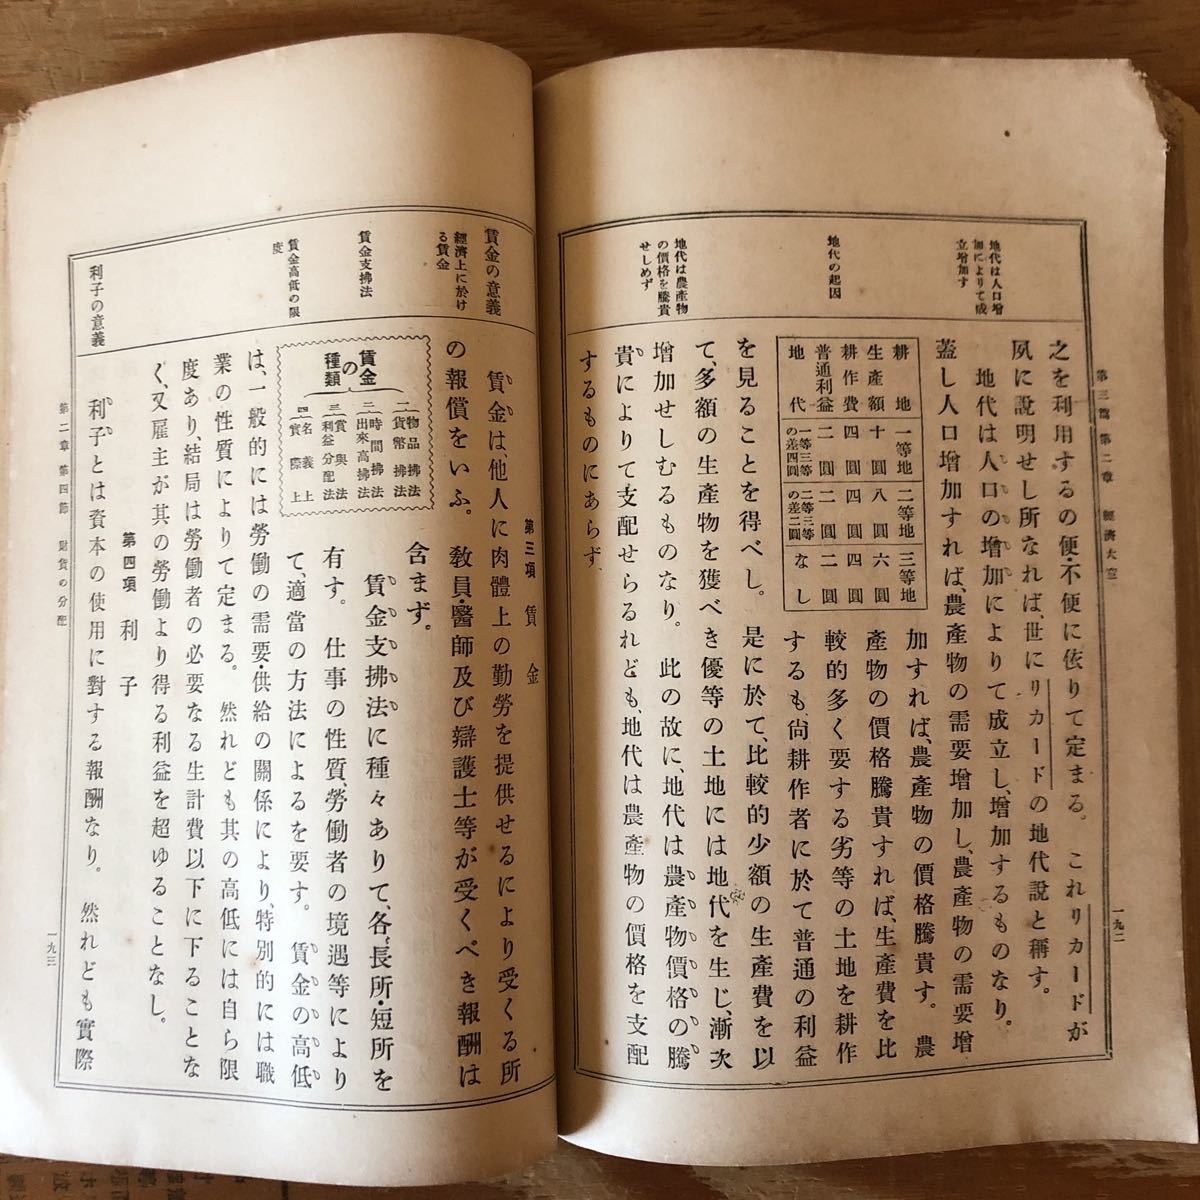 第三篇 第二章 經濟大意
一九二
地代は人口增
加によりて成
立增加す
地代の起因
地代は農產物
の價格を騰貴
せしめず
之を利用するの便・不便に依りて定まる。 これリカードが
夙に說明せし所なれば、世にリカードの地代說と稱す。
地代は人口の增加によりて成立し、增加するものなり。
蓋し人口增加すれば、農產物の需要增加し、農產物の需要增
加すれば、農產物の價格騰貴す。 農
產物の價格騰貴すれば、生產費を比
較的多く要する劣等の土地を耕作
するも、尙耕作者に於て普通の利益
耕地 一等地 二等地 三等地
生產額 十圓 八圓 六圓
耕作費 四圓 四圓 四圓
普通利益 二圓 二圓 二圓
地代 一等三等の差四圓 二等三等の差二圓 なし
を見ることを得べし。 是に於て、比較的少額の生產費を以
て、多額の生產物を獲べき優等の土地には地代を生じ、漸次
增加せしむるものなり。 此の故に、地代は農產物價格の騰
貴によりて支配せらるれども、地代は農產物の價格を支配
するものにあらず。
賃金の意義
經濟上に於け
る賃金
賃金支拂法
賃金高低の限
度
利子の意義
第三項 賃金
賃金は、他人に肉體上の勤勞を提供せるにより受くる所
の報償をいふ。 敎員・醫師及び辯護士等が受くべき報酬は
含まず。
賃金の種類
一 物品拂法 貨幣拂法
二 時間拂法 出來高拂法
三 賞與法 利益分配法
四 名義上 實際上
賃金支拂法に種々ありて、各、長所・短所を
有す。 仕事の性質、勞働者の境遇等により
て、適當の方法によるを要す。 賃金の高低
は、一般的には勞働の需要・供給の關係により、特別的には職
業の性質によりて定まる。 然れども其の高低には自ら限
度あり、結局は勞働者の必要なる生計費以下に下ることな
く、又雇主が其の勞働より得る利益を超ゆることなし。
第四項 利子
利子とは資本の使用に對する報酬なり。 然れども實際
第二章 第四節 財貨の分配
一九三